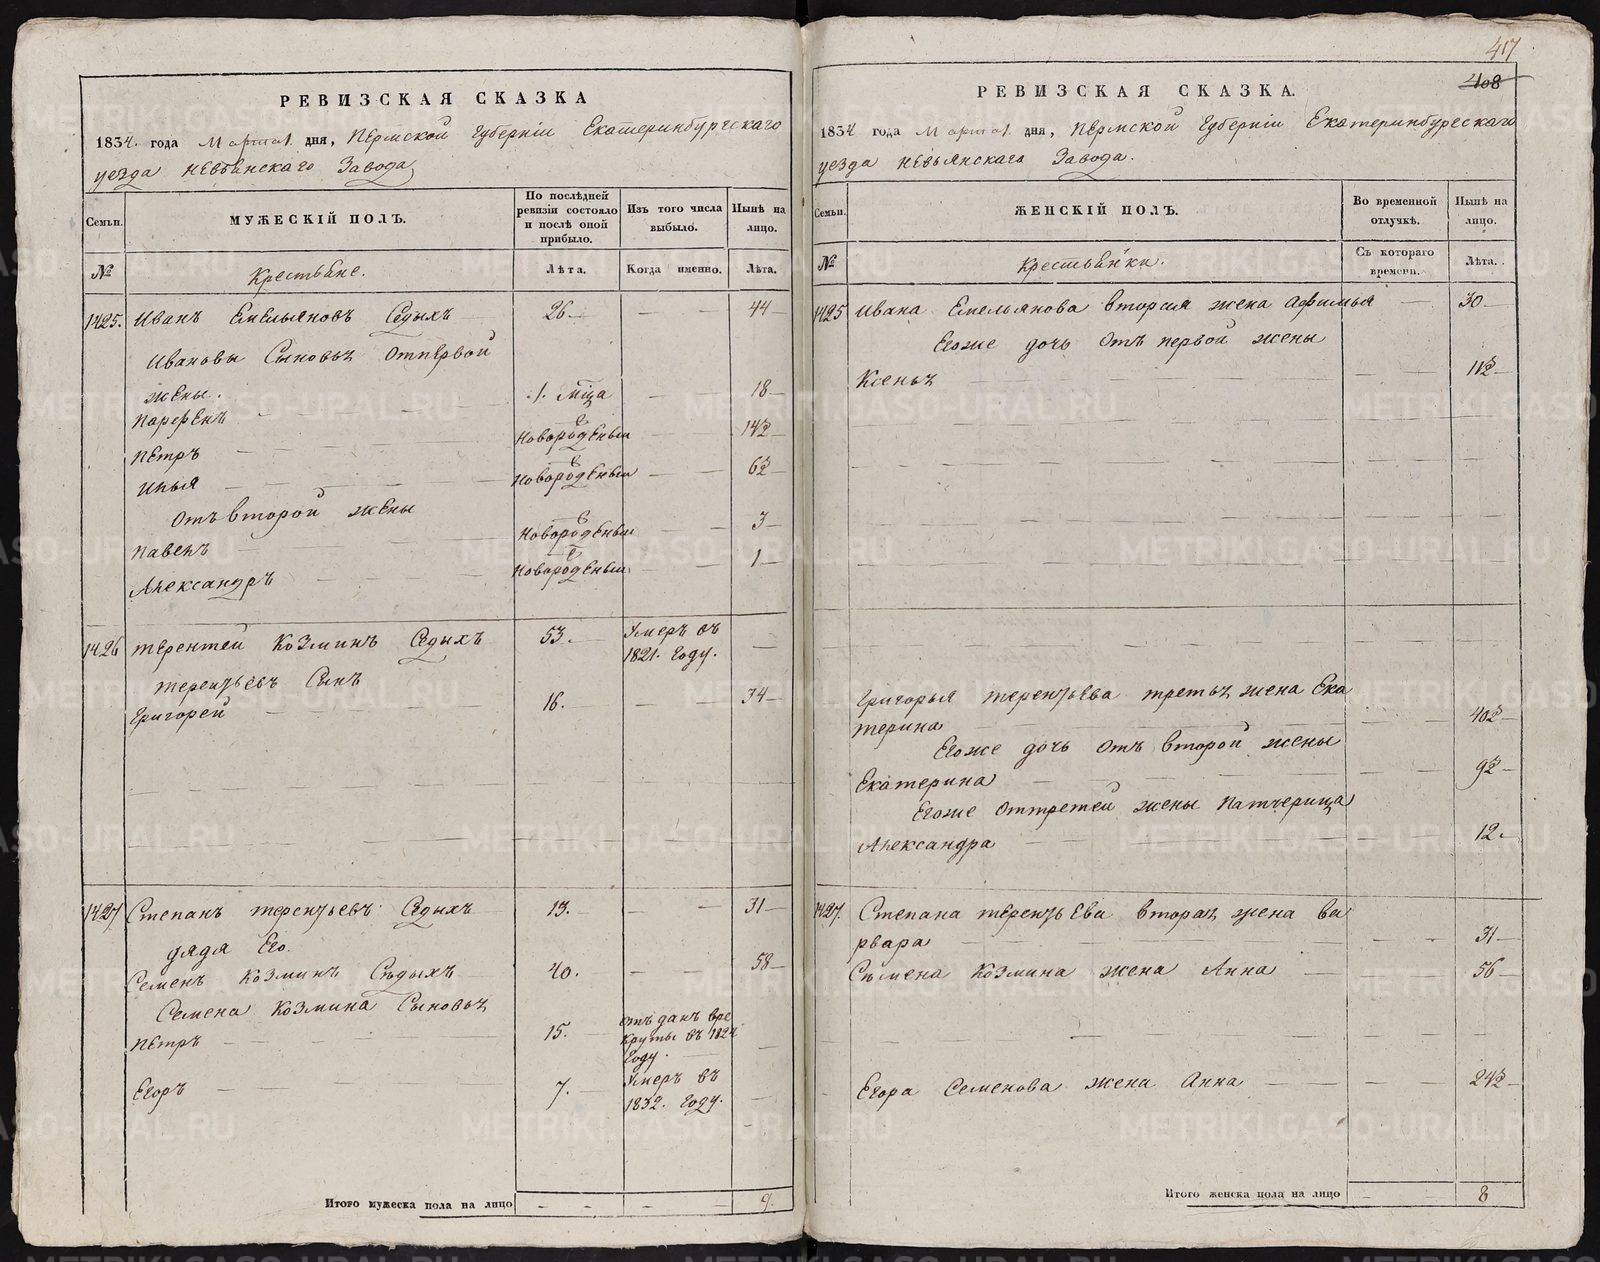 РЕВИЗСКАЯ СКАЗКА
1834. года Марта 1 дня, Пермской Губерніи Екатеринбургскаго
уезда Невьянскаго Завода
Семьи.
МУЖЕСКІЙ ПОЛЪ.
По послѣдней ревизіи состояло и послѣ оной прибыло.
Изъ того числа выбыло.
Нынѣ на лицо.
№
Крестьяне.
Лѣта.
Когда именно.
Лѣта.
1425. Иванъ Емельяновъ Седыхъ 26 — — 44
Ивановы Сыновья отпервой
жены.
Парфенъ 1. мца — — 18
Петръ Новорожденый — — 14½
Илья Новорожденый — — 6½
Отъ второй жены
Павелъ Новорожденый — — 3
Александръ Новорожденый — — 1
1426 Терентей Козминъ Седыхъ 53. Умеръ въ 1821. Году. —
Терентьевъ Сынъ
Григорей 16. — — 34
1427 Степанъ Терентьевъ Седыхъ 13. — — 31
дядя Его
Семенъ Козминъ Седыхъ 40. — — 58
Семена Козмина Сыновья
Петръ 15. Отъданъ врекруты въ 1824 Году. —
Егоръ 7. Умеръ въ 1832. Году. —
Итого мужеска пола на лицо — — — 9.
417
408
РЕВИЗСКАЯ СКАЗКА.
1834 года Марта 1 дня, Пермской Губерніи Екатеринбургскаго
уезда Невьянскаго Завода.
Семьи.
ЖЕНСКІЙ ПОЛЪ.
Во временной отлучкѣ.
Нынѣ на лицо.
№
Крестьянки.
Съ котораго времени.
Лѣта.
1425 Ивана Емельянова вторая жена Афимья — 30
Егоже дочь Отъ первой жены
Ксенья — 11½
Григорья Терентьева третья жена Ека
терина — 40½
Егоже дочь Отъ второй жены
Екатерина — 9½
Егоже Оттретей жены Патчерица
Александра — 12.
1427. Степана Терентьева вторая жена ва
рвара — 31
Семена Козмина жена Анна 56
Егора Семенова жена Анна — 24½
Итого женска пола на лицо — 8
METRIKI.GASO-URAL.RU